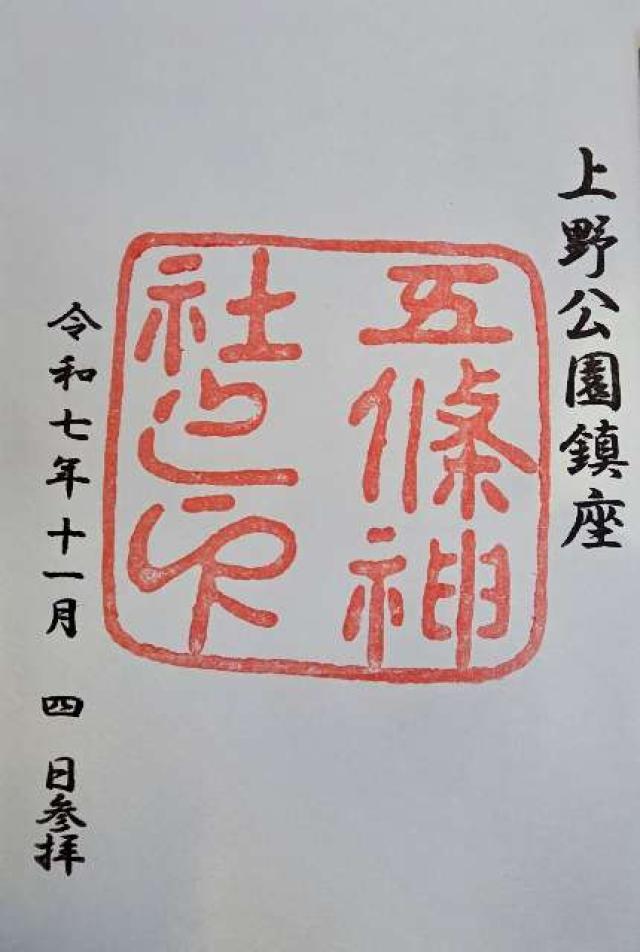 上野公園鎮座
五條神
社之印
令和七年十一月 四 日参拝